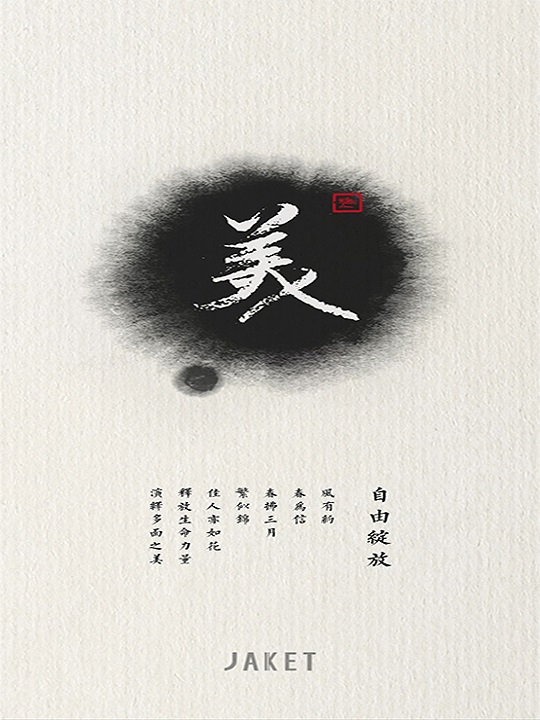 美
自由綻放
風有約
春為信
春拂三月
繁似錦
佳人亦如花
釋放生命力量
演繹多面之美
JAKET